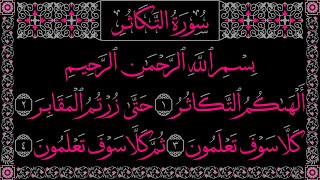 سُورَةُ التَّكَاثُرِ
بِسْمِ ٱللَّهِ ٱلرَّحْمَٰنِ ٱلرَّحِيمِ
أَلْهَىٰكُمُ ٱلتَّكَاثُرُ ۝١ حَتَّىٰ زُرْتُمُ ٱلْمَقَابِرَ ۝٢
كَلَّا سَوْفَ تَعْلَمُونَ ۝٣ ثُمَّ كَلَّا سَوْفَ تَعْلَمُونَ ۝٤